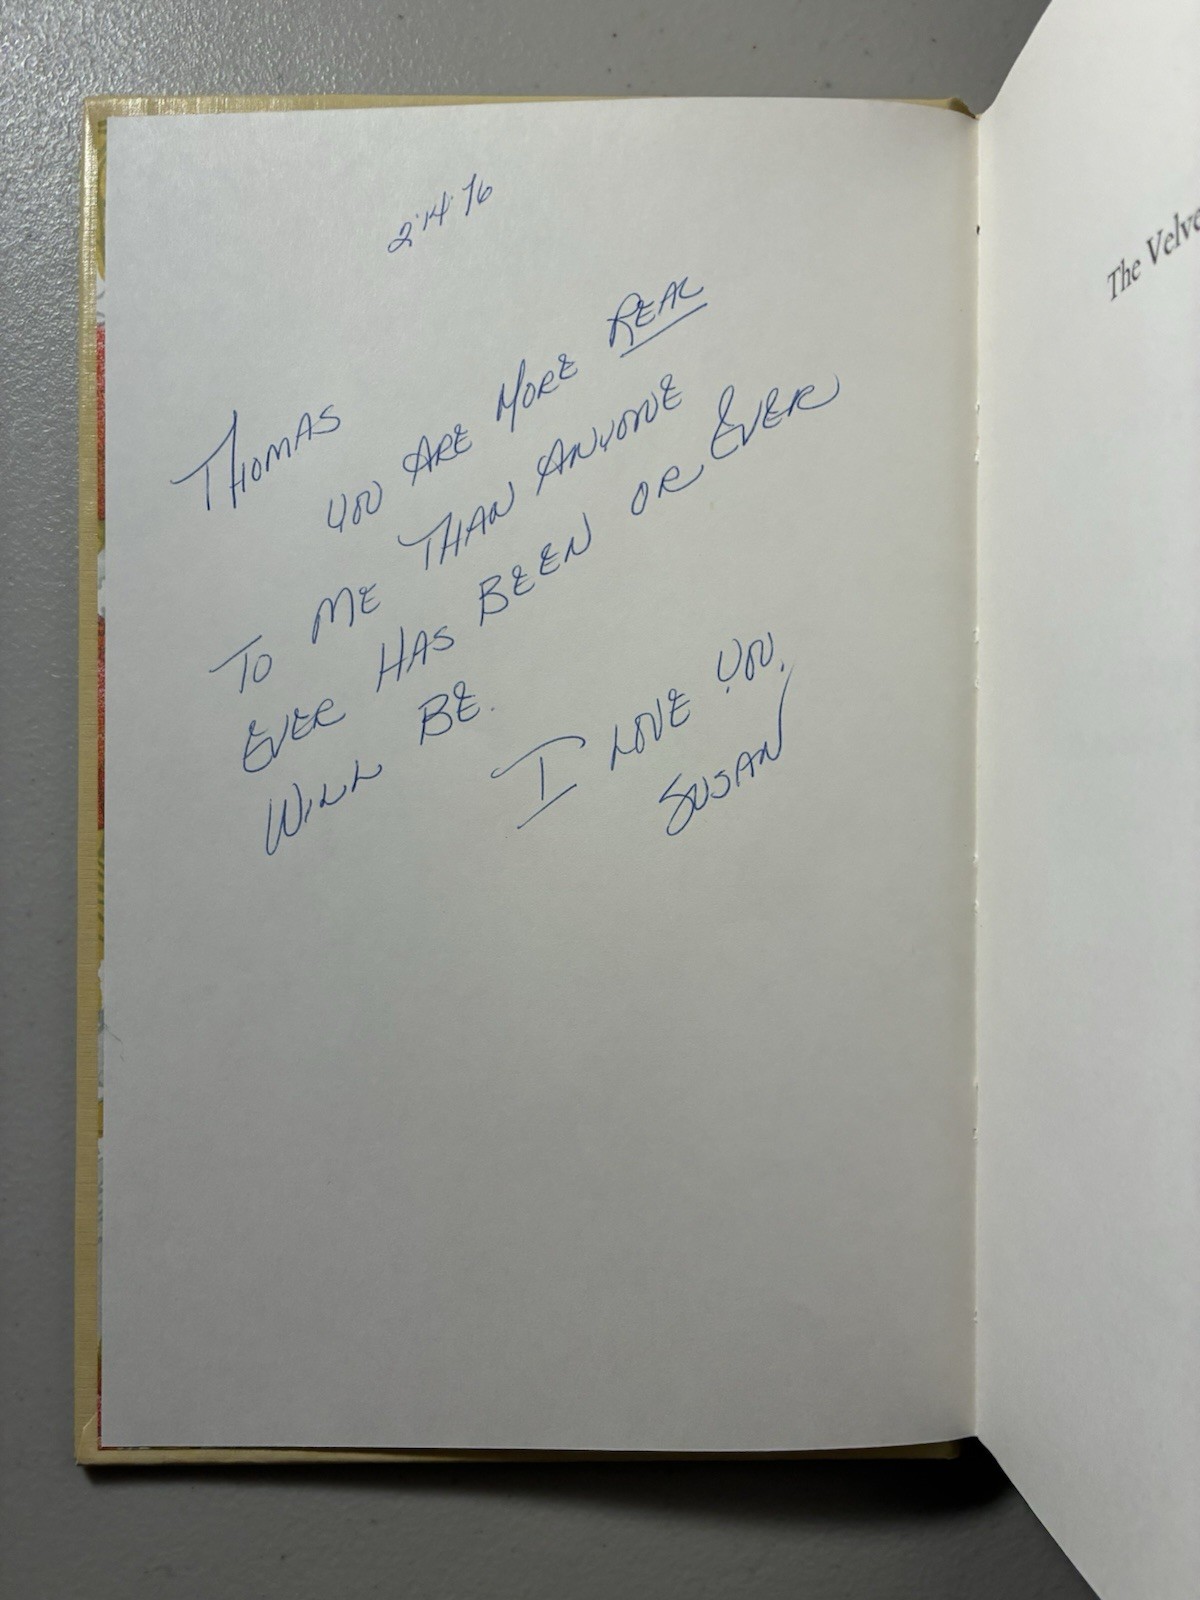 2·14·76
THOMAS
YOU ARE MORE REAL
TO ME THAN ANYONE
EVER HAS BEEN OR EVER
WILL BE.
I LOVE YOU.
SUSAN
The Velve